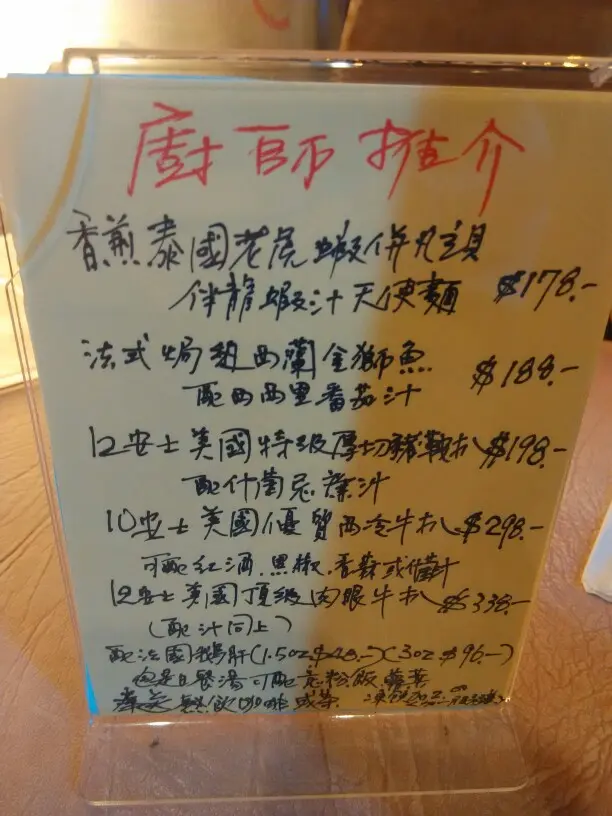 廚師推介
香煎泰國老虎蝦併元貝
伴龍蝦汁天使麵 $178.-
法式焗紐西蘭金獅魚 $188.-
配西西里番茄汁
12安士美國特級厚切豬鞍扒 $198.-
配什菌忌廉汁
10安士美國優質西冷牛扒 $298.-
可配紅酒、黑椒、香蒜或備汁
12安士美國頂級肉眼牛扒 $338.-
(配汁同上)
配法國鵝肝(1.5oz.$48.-)(3oz.$96.-)
是日餐湯可配意粉飯薯菜
熱飲咖啡或茶 凍飲